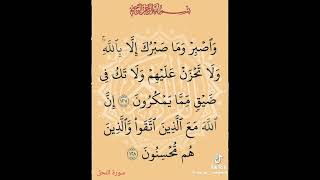 بسم الله الرحمن الرحيم
وَٱصۡبِرۡ وَمَا صَبۡرُكَ إِلَّا بِٱللَّهِۚ
وَلَا تَحۡزَنۡ عَلَيۡهِمۡ وَلَا تَكُ فِي
ضَيۡقٖ مِّمَّا يَمۡكُرُونَ ١٢٧ إِنَّ
ٱللَّهَ مَعَ ٱلَّذِينَ ٱتَّقَواْ وَّٱلَّذِينَ
هُم مُّحۡسِنُونَ ١٢٨
سورة النحل